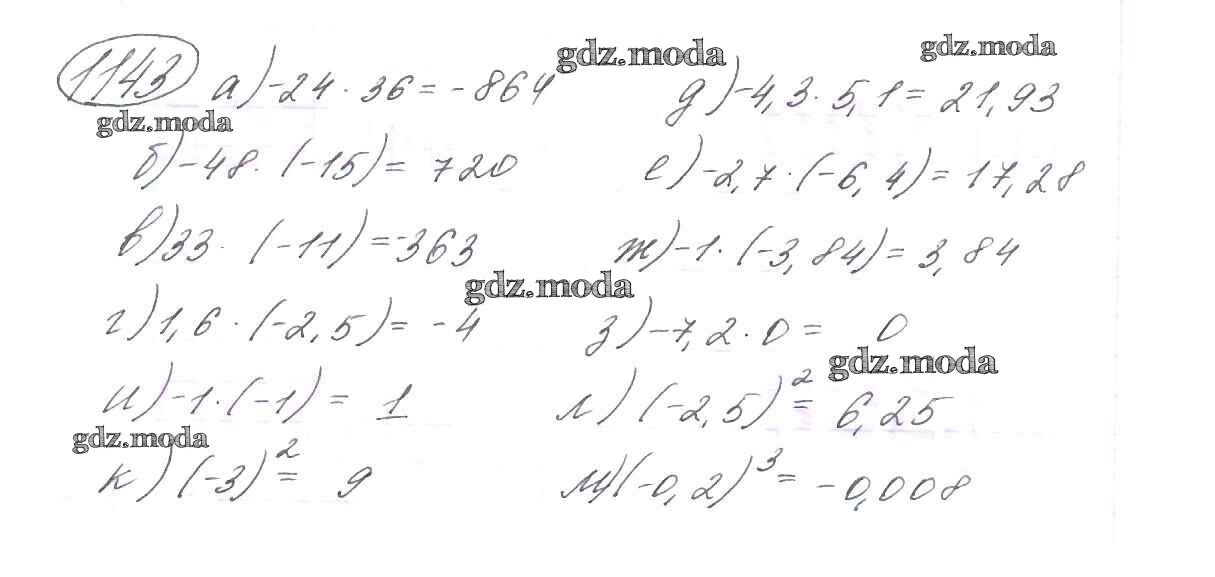 1143 а) -24 · 36 = -864 д) -4,3 · 5,1 = 21,93
gdz.moda gdz.moda
gdz.moda
б) -48 · (-15) = 720 е) -2,7 · (-6,4) = 17,28
в) 33 · (-11) = -363 ж) -1 · (-3,84) = 3,84
gdz.moda
г) 1,6 · (-2,5) = -4 з) -7,2 · 0 = 0
gdz.moda
и) -1 · (-1) = 1 л) (-2,5)² = 6,25
gdz.moda
к) (-3)² = 9 м) (-0,2)³ = -0,008